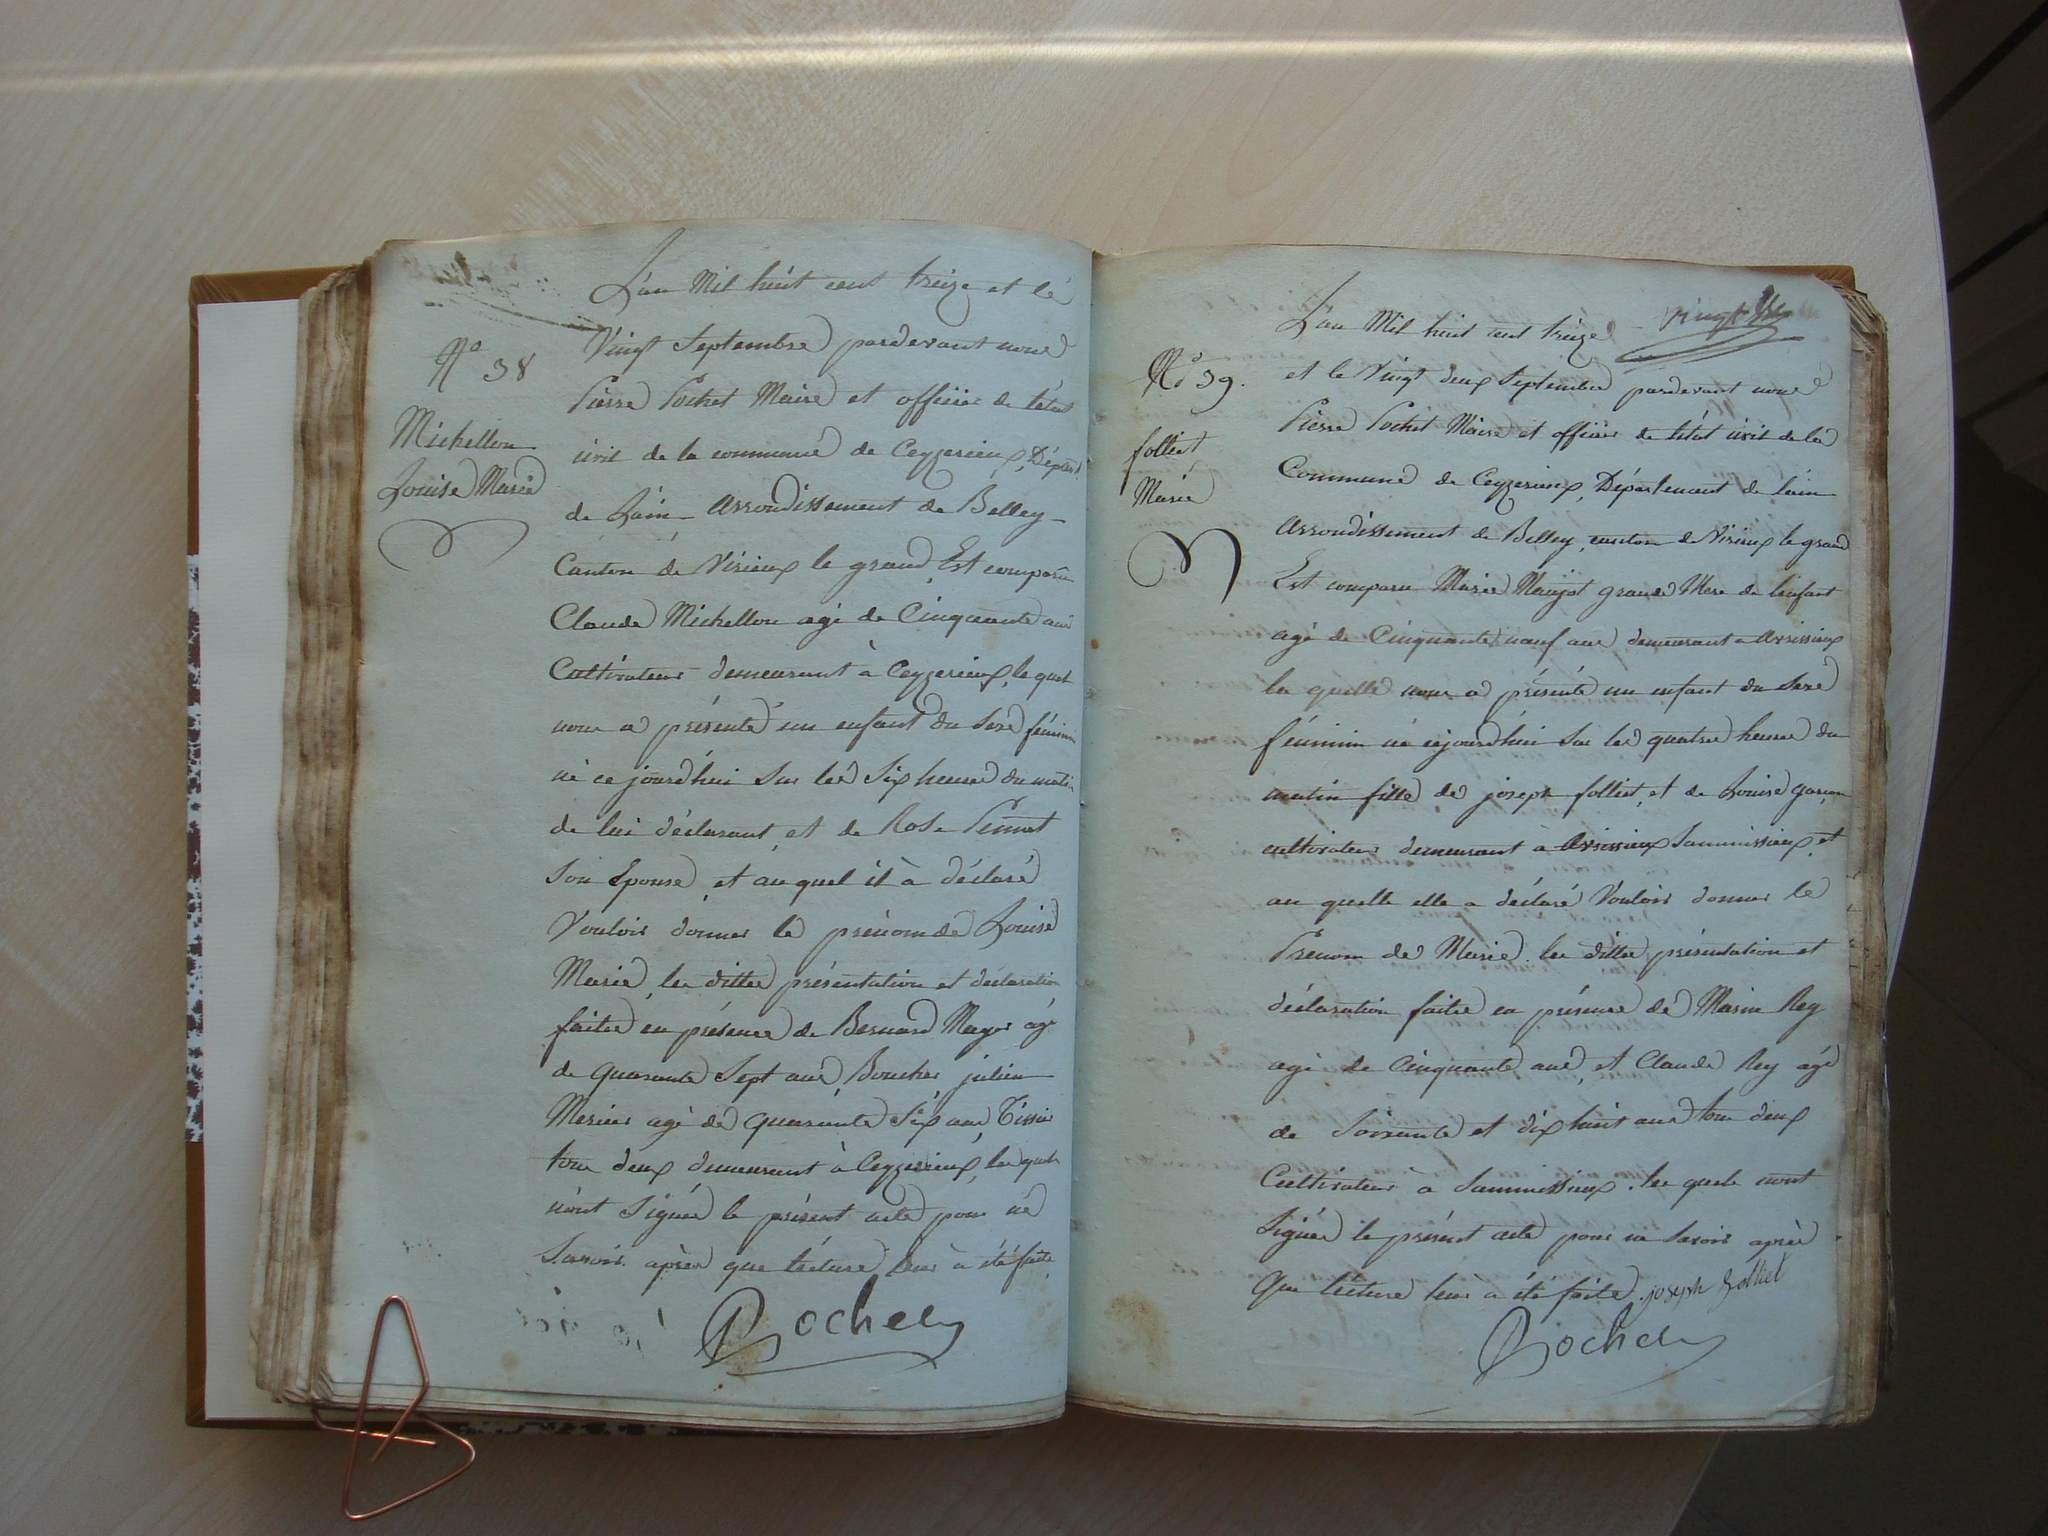 L'an Mil huit cent treize et le
Vingt Septembre pardevant nous
Pierre Pochet Maire et officier de l'état
civil de la commune de Ceyzerieux, Départ.
de Lain - Arrondissement de Belley -
Canton de Virieux le grand, Est comparu
Claude Michellon agé de Cinquante ans
Cultivateur demeurant à Ceyzerieux, le quel
nous a présenté un enfant du Sexe féminin
né ce jourd'hui Sur les Six heures du matin
de lui déclarant, et de Rose
Son Epouse, et au quel il à déclaré
Vouloir donner le prénom de Louise
Marie, les dittes présentation et declaration
faites en présence de Bernard Meyer agé
de quarante Sept ans, Boucher, julien
Mercier agé de quarante Six ans, Tissier
tous deux demeurant à Ceyzerieux, les quels
n'ont Signés le présent acte pour ne
Savoir. après que lécture leur à été faite
Pochet
N° 38
Michellon
Louise Marie
vingt
L'an Mil huit cent treize
et le Vingt deux Septembre pardevant nous
Pierre Pochet Maire et officier de l'état civil de la
Commune de Ceyzerieux, Département de lain
Arrondissement de Belley, canton de Virieux le grand
Est comparu Marie grande Mere de l'enfant
agé de Cinquante neuf ans demeurant a Avrissieux
la quelle nous a présenté un enfant du Sexe
féminin né cejourd'hui Sur les quatre heures du
matin fille de joseph folliet, et de Louise garçon
cultivateur demeurant à Avrissieux Sammissieux, et
au quelle elle a déclaré Vouloir donner le
Prenom de Marie. les dittes présentation et
déclaration faites en présence de Marin Rey
agé de Cinquante ans, et Claude Rey agé
de Soixante et dix huit ans tous deux
Cultivateur à Sammissieux. les quels n'ont
Signés le présent acte pour ne Savoir après
Que lécture leur a été faite. joseph folliet
Pochet
N° 39.
folliet
Marie